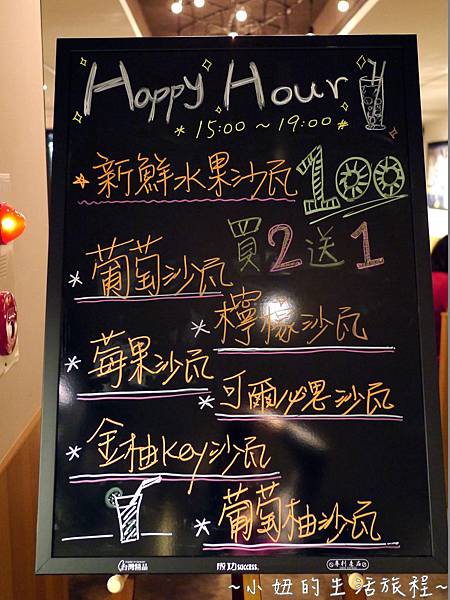 Happy Hour
* 15:00 ~ 19:00 #
新鮮水果沙瓦 100
買2送1
* 葡萄沙瓦
* 檸檬沙瓦
* 莓果沙瓦
* 可爾必思沙瓦
* 金柚Key沙瓦
* 葡萄柚沙瓦
台灣精品
成功 success.
專利產品
~小妞的生活旅程~